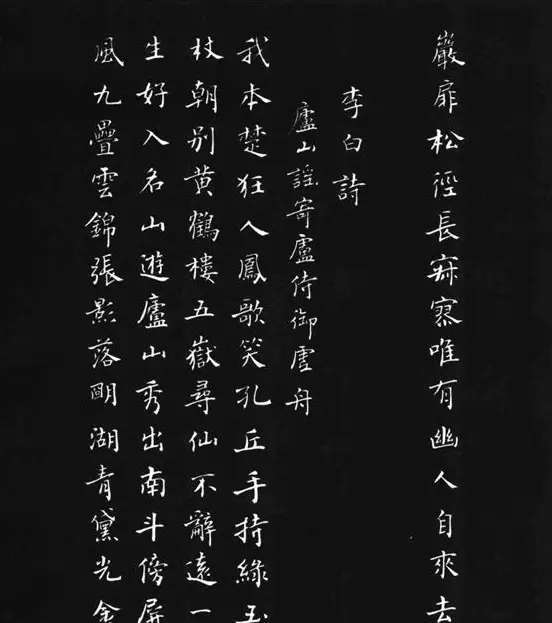 巖扉松徑長寂寥唯有幽人自來去
李白詩
廬山謠寄盧侍御虛舟
我本楚狂人鳳歌笑孔丘手持綠玉
杖朝別黄鶴樓五嶽尋仙不辭遠一
生好入名山遊廬山秀出南斗傍屏
風九疊雲錦張影落明湖青黛光金